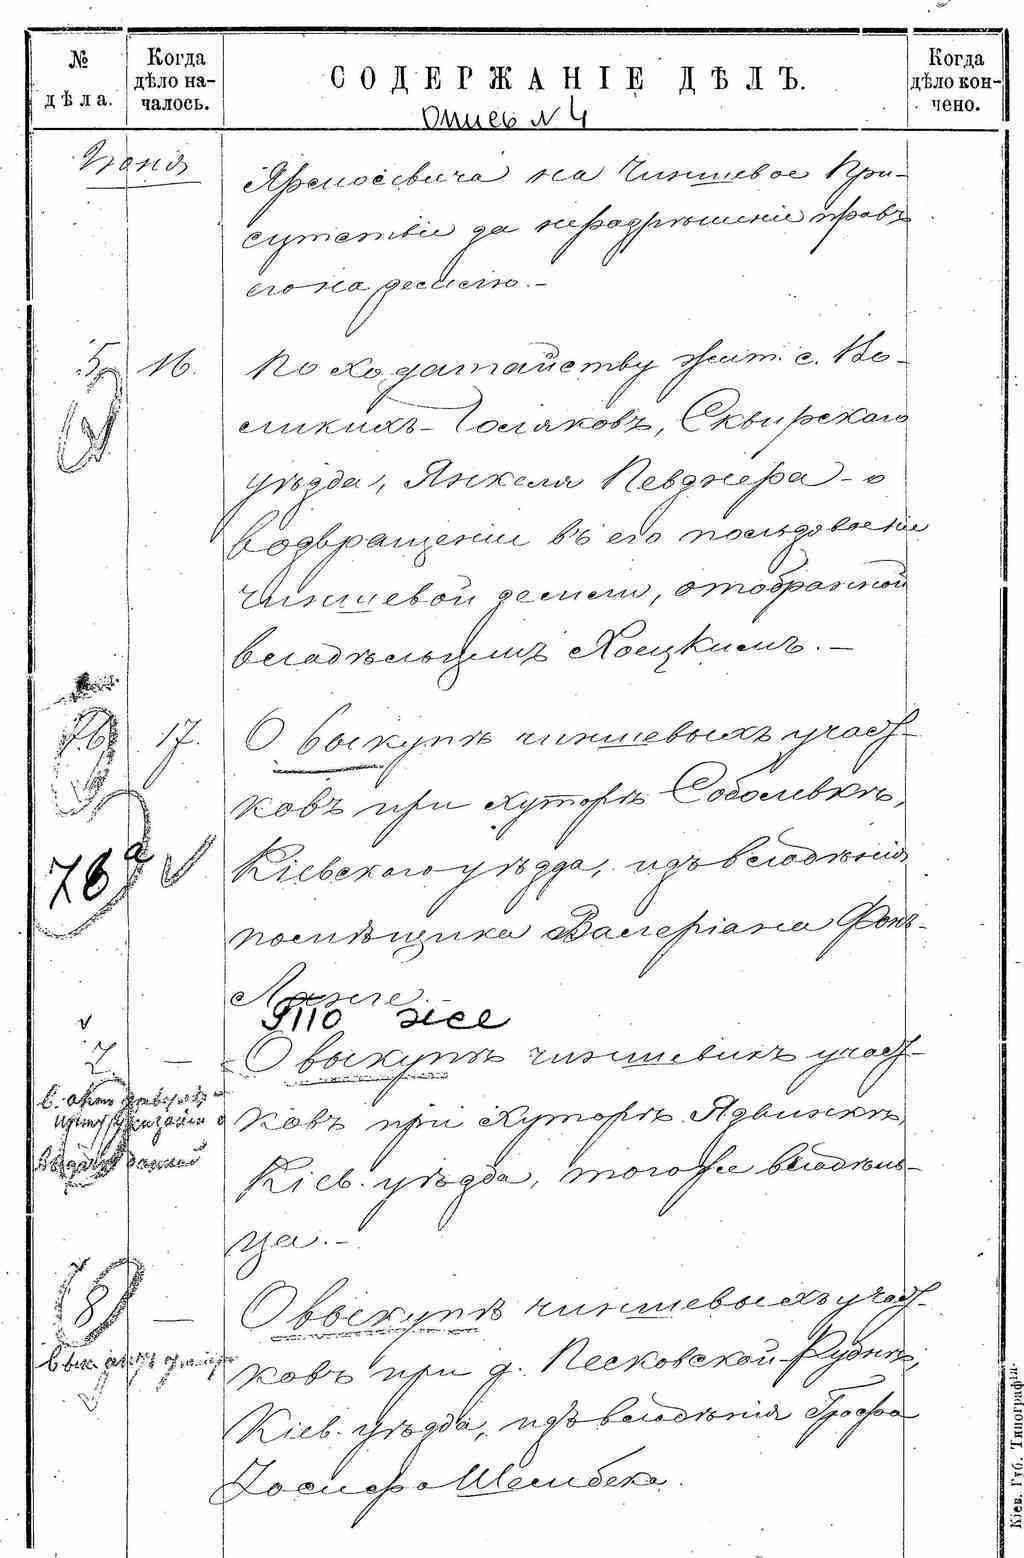 № дѣла.
Когда дѣло на-чалось.
СОДЕРЖАНІЕ ДѢЛЪ.
Когда дѣло кон-чено.
Опись № 4
Іюня
на Чиншевое При-
сутствіе за неразрѣшеніе правъ
его на землю.-
5 16. По ходатайству жит. с. Ве-
ликихъ-Голяковъ, Сквирскаго
уѣзда, Янкеля Певзнера - о
возвращеніи въ его пользованіе
чиншевой земли, отобранной
владѣльцемъ Хоецкимъ.-
7б 17. О выкупѣ чиншевыхъ участ-
ковъ при хуторѣ Соболевкѣ,
7б а
Кіевскаго уѣзда, изъ владѣнія
помѣщика Валеріана Фонъ-
Ланге.-
Это же
7 — О выкупѣ чиншевихъ участ-
ковъ при хуторѣ Ядвинкѣ,
Кіев. уѣзда, тогоже владѣль-
ца.-
8 — О выкупѣ чиншевыхъ участ-
ковъ при д. Песковской-Руднѣ,
Кіев. уѣзда, изъ владѣнія Графа
Іосифа Шембека.
Кіев. Губ. Типографія.